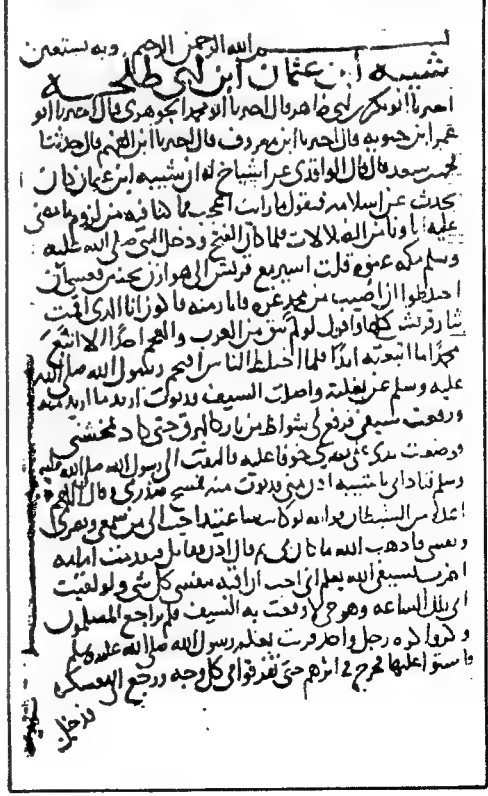 بسم الله الرحمن الرحيم وبه نستعين
شيبة ابن عثمان ابن ابي طلحة
اخبرنا ابو بكر بن ابي طاهر قال اخبرنا ابو محمد الجوهري قال اخبرنا ابو
عمر ابن حيويه قال اخبرنا ابن معروف قال اخبرنا ابن الفهم قال حدثنا
محمد بن سعد قال قال الواقدي عن اشياخ له ان شيبة ابن عثمان كان
يحدث عن اسلامه فيقول ما رايت اعجب مما كنا فيه من لزوم ما مضى
عليه اباونا من الضلالات فلما كان الفتح ودخل النبي صلى الله عليه
وسلم مكه عنوه قلت اسير مع قريش الى هوازن بحنين فعسى ان
اختلطوا ان اصيب من محمد غره فاثار منه فاكون انا الذي قمت
بثار قريش كلها واقول لو لم يبق من العرب والعجم احدا الا اتبع
محمدا ما اتبعته ابدا فلما اختلط الناس اقتحم رسول الله صلى الله
عليه وسلم عن بغلته واصلت السيف ودنوت اريد ما اريد منه
ورفعت سيفي فرفع لي شواظ من نار كالبرق حتى كاد يمحشني
فوضعت يدي على بصري خوفا عليه فالتفت الى رسول الله صلى الله عليه
وسلم فناداني يا شيبة ادن مني فدنوت منه فمسح صدري وقال اللهم
اعذه من الشيطان فوالله لهو كان ساعتيذ احب الي من سمعي وبصري
ونفسي فاذهب الله ما كان بي ثم قال ادن فقاتل فتقدمت امامه
اضرب بسيفي الله يعلم اني احب ان اقيه بنفسي كل شي ولو لقيت
ابي تلك الساعه وهو حي لاوقعت به السيف فلما تراجع المسلمون
وكروا كره رجل واحد قربت بغله رسول الله صلى الله عليه وسلم
فاستوا عليها فخرج في اثرهم حتى تفرقوا في كل وجه ورجع الى معسكره
فدخل